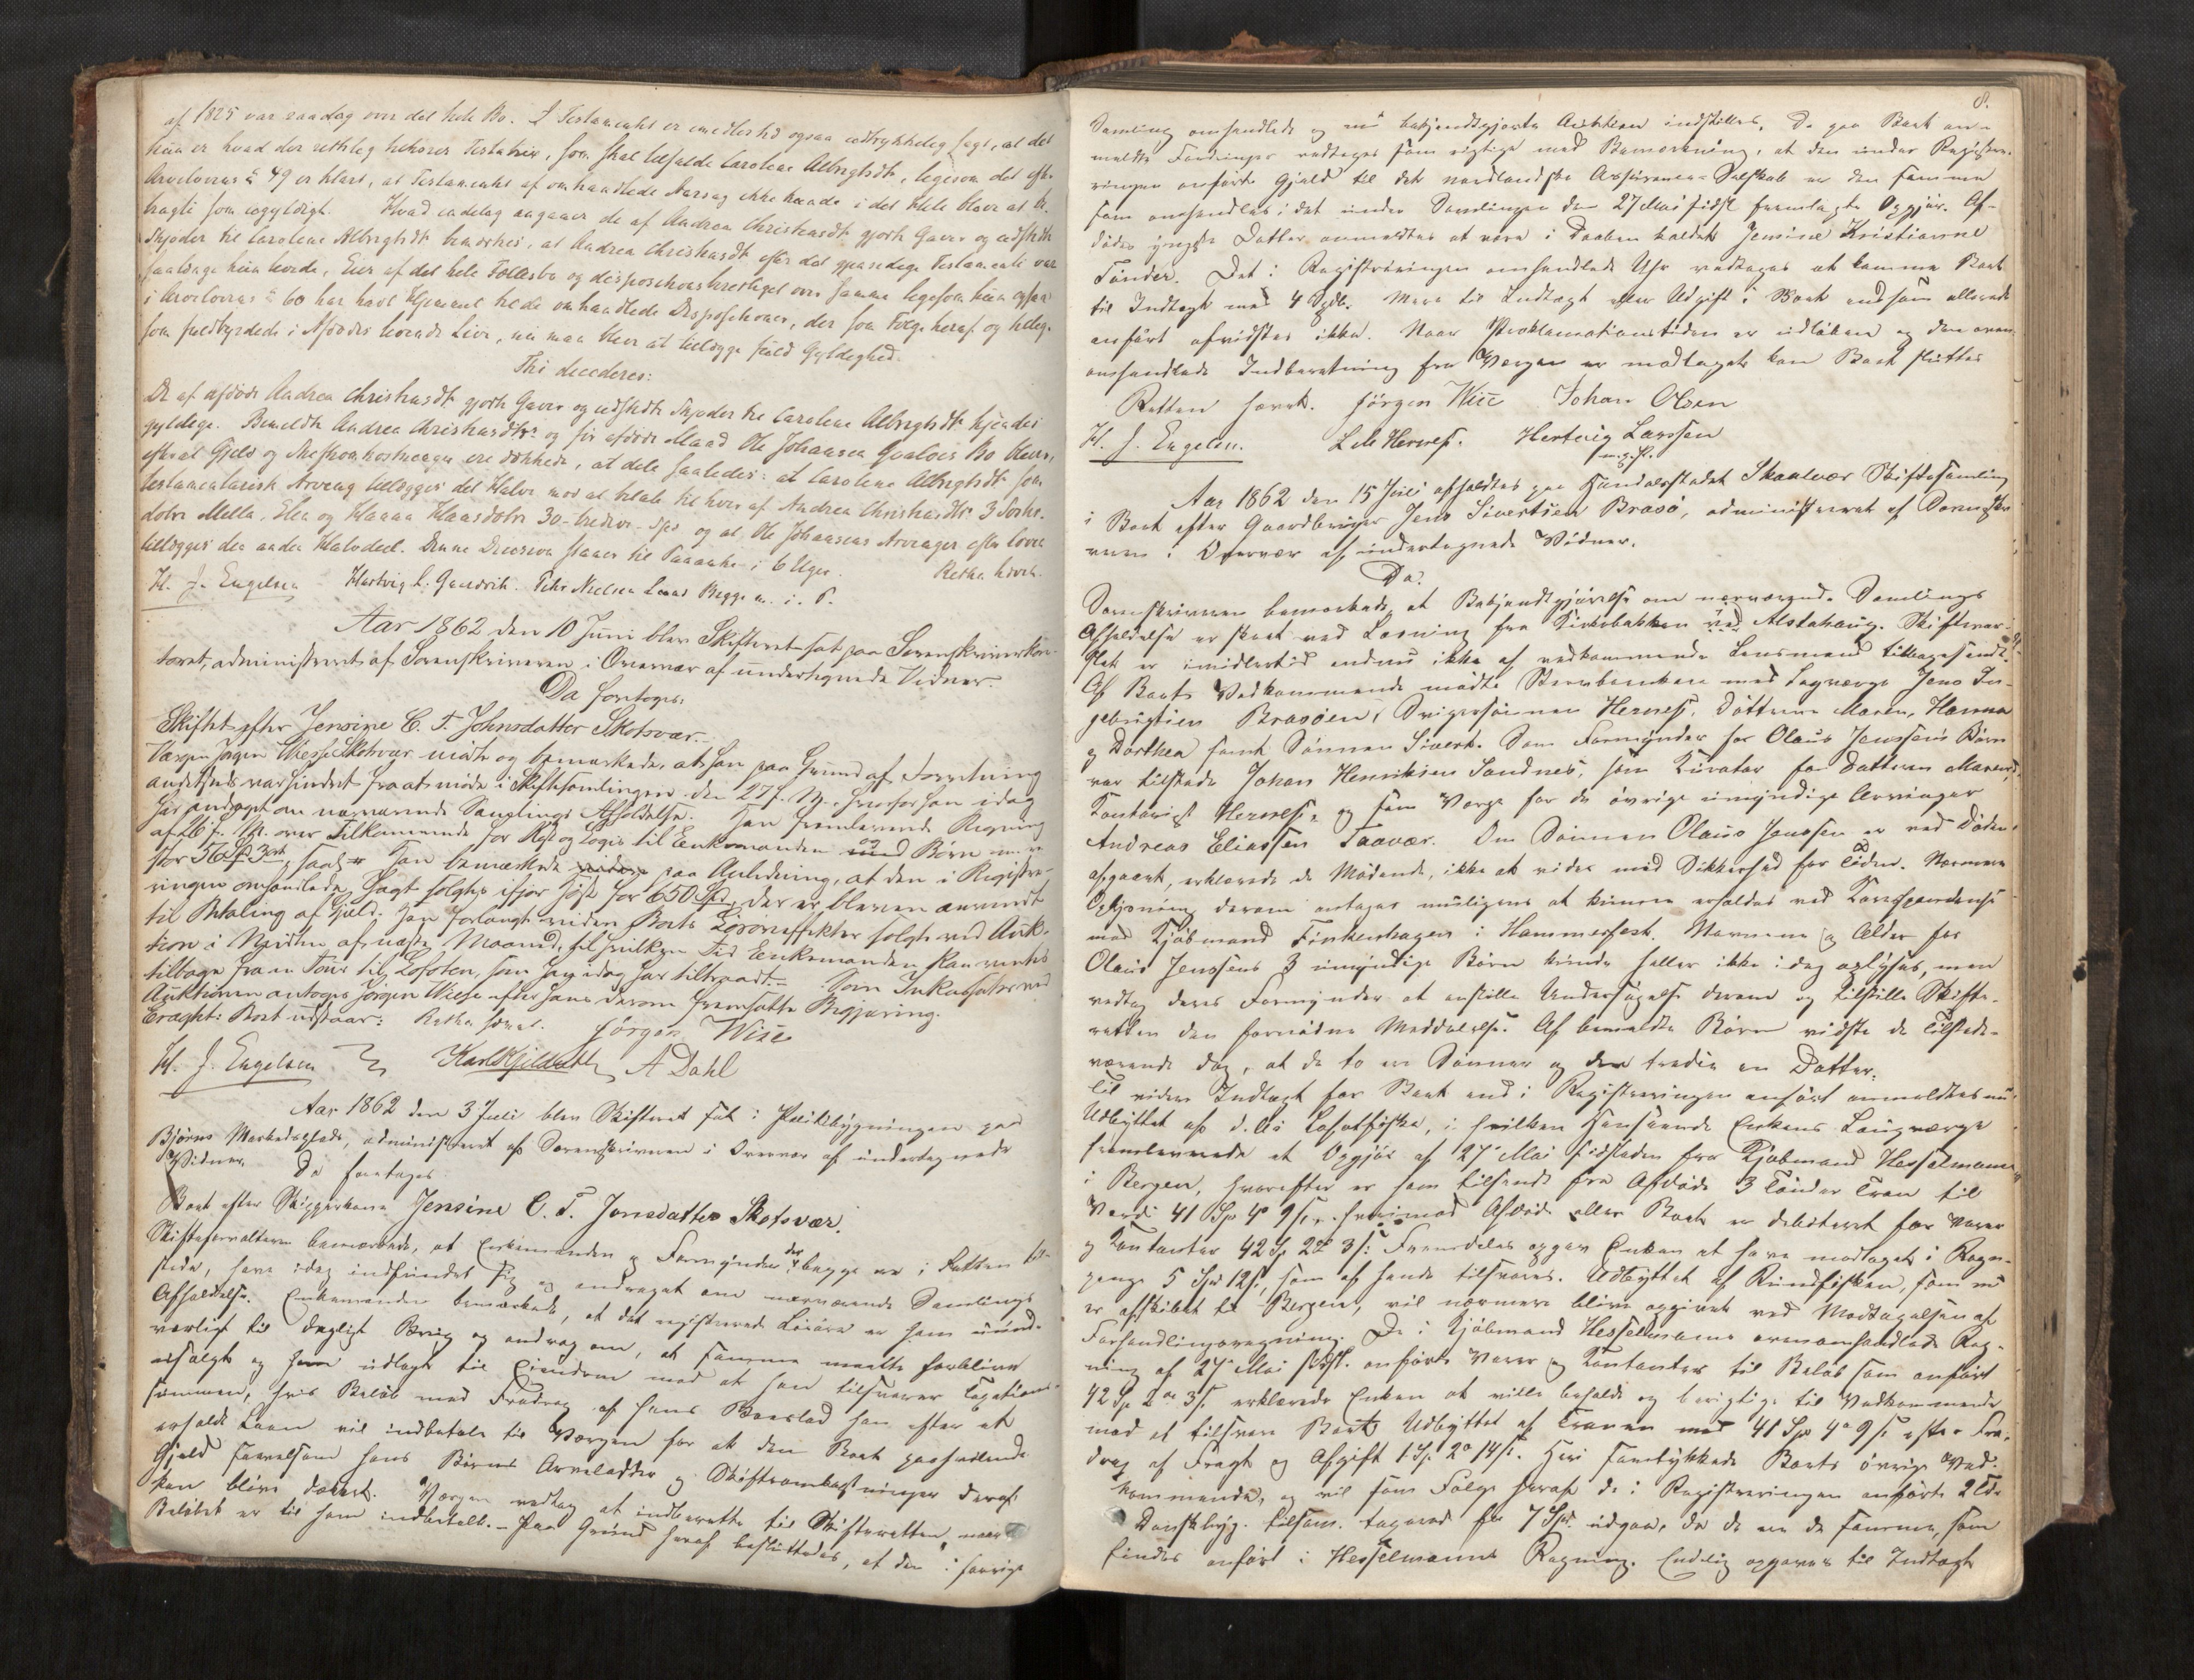 af 1825 var raadig over det hele Bo. I Testamentet er imedlertid ogsaa udtrykkelig sagt, at det
kun er hvad der retslig tilhører Testatrix, som skal tilfalde Caroline Albrigtsdtr, ligesom det efter
Arvelovens § 49 er klart, at Testamentet af omhandlede Aarsag ikke kunde i det Hele blive at be-
tragte som ugyldigt. Hvad endelig angaaer de af Andrea Christiansdtr gjorte Gaver og udstedte
Skjøder til Caroline Albrigtsdtr bemærkes, at Andrea Christiansdtr efter det gjensidige Testamente var
saalænge hun levede, Eier af det hele Fællesbo og dispositionsberettiget over samme ligesom hun ogsaa
i Arvelovens § 60 har havt Hjemmel til de omhandlede Dispositioner, der som Følge heraf og tillige
som fuldbyrdede i Afdødes levende Live, nu maa blive at tillægge fuld Gyldighed.
Thi decideres:
De af afdøde Andrea Christiansdtr gjorte Gaver og udstedte Skjøder til Caroline Albrigtsdtr kjendes
gyldige. Bemeldte Andrea Christiansdtrs og før afdøde Mand Ole Johansen Qvaløes Bo bliver,
efterat Gjeld og Skifteomkostninger ere dækkede, at dele saaledes: at Caroline Albrigtsdtr som
testamentarisk Arving tillægges det Halve mod at betale til hver af Andrea Christiansdtrs 3 Søster-
døtre Mella, Elen og Hanna Hansdøtre 30 - tredive - Spd og at Ole Johansens Arvinger efter Loven
tillægges den anden Halvdeel. Denne Decision staaer til Paaanke i 6 Uger.
Retten hævet.
H. J. Engelsen Hartvig L. Peter Nielsen Begge m. i. P.
Aar 1862 den 10 Juni blev Skifteret sat paa Sorenskriverkon-
toret, administreret af Sorenskriveren i Overvær af undertegnede Vidner.
Da foretoges:
Skiftet efter Jensine C. T. Johnsdatter Skotsvær.
Værgen Jørgen Wiese Skotsvær mødte og bemærkede, at han paa Grund af Forretning
andetsteds var hindret fra at møde i Skiftesamlingen den 27 f. M., hvorfor han idag
har andraget om nærværende Samlings Afholdelse. Han fremleverede Regning
af 26 f. M. over Tilkommende for Kost og Logis til Enkemanden og Børn
stor Han bemærkede paa Anledning, at den i Registre-
ringen omhandlede Jagt solgtes ifjor Høst for 650 Spd, der er bleven anvendt
til Betaling af Gjeld. Han forlangte videre Boets Løsøreeffekter solgte ved Auk-
tion i Midten af næste Maaned, til hvilken Tid Enkemanden kan ventes
tilbage fra en Tour til Lofoten, som han idag har tiltraadt. Som Inkassator ved
Auktionen antoges Jørgen Wiese efter hans derom fremsatte Begjæring.
Eragtet: Boet udstaar: Retten hævet. Jørgen Wise
H. J. Engelsen Karl Kjeldseth A Dahl
Aar 1862 den 3 Juli blev Skifteret sat i Politibygningen paa
Bjørns Markedsplads, administreret af Sorenskriveren i Overvær af undertegnede
Vidner. Da foretoges
Boet efter Skipperkone Jensine C. T. Jonsdatter Skotsvær.
Skifteforvalteren bemærkede, at Enkemanden og Formynder der begge ere i Retten til-
stede, have idag indfundet sig og andraget om nærværende Samlings
Afholdelse. Enkemanden bemærkede, at det registrerede Løsøre er ham uund-
værligt til dagligt Brug og androg om, at samme maatte forblive
usolgt og ham udlagt til Eiendom mod at han tilsvarer Taxations-
summen, hvis Beløb med Fradrag af hans Boeslod han efter at
erholde Laan vil indbetale til Værgen for at den Boet paahvilende
Gjeld saavelsom hans Børns Arvelodder og Skifteomkostninger deraf
kan blive dækket. Værgen vedtog at indberette til Skifteretten, naar
Beløbet er til ham indbetalt. - Paa Grund heraf besluttedes, at den i forrige
8.
Samling omhandlede og nu bekjendtgjorte Auktion indstilles. De paa Boet an-
meldte Fordringer vedtages som rigtige med Bemærkning, at den under Registre-
ringen anførte Gjeld til det nordlandske Assurance-Selskab er den samme
som omhandles i det under Samlingen den 27 Mai sidst fremlagte Opgjør. Af-
dødes yngste Datter anmeldtes at være i Daaben kaldet Jensine Kristianne
Tønder. Det i Registreringen omhandlede Uhr vedtages at komme Boet
til Indtægt med 4 Spdl. Mere til Indtægt eller Udgift i Boet end som allerede
anført afvidstes ikke. Naar Proklamationstiden er udløben og den oven-
omhandlede Indberetning fra Værgen er modtaget kan Boet sluttes
Retten hævet. Jörgen Wise Johan Olsen
H. J. Engelsen. L Herness. Hertvig Larssen
m. p. P.
Aar 1862 den 15 Juli afholdtes paa Handelsstedet Skaalvær Skiftesamling
i Boet efter Gaardbruger Jens Sivertsen Brasø, administreret af Sorenskri-
veren i Overvær af undertegnede Vidner.
Da.
Sorenskriveren bemærkede, at Bekjendtgjørelse om nærværende Samlings
Afholdelse er skeet ved Læsning fra Kirkebakken ved Alstahaug. Skiftevar-
slet er imidlertid endnu ikke af vedkommende Lensmand tilbagesendt.
Af Boets Vedkommende mødte Sterboenken med Lagværge Jens In-
gebrigtsen Brasøen, Svigersønnen Herness, Døttrene Maren, Hanna
og Dorthea samt Sønnen Sivert. Som Formynder for Olaus Jenssens Børn
var tilstede Johan Henriksen Sandnes, som Kurator for Datteren Maren,
Kontorist Herness og som Værge for de øvrige umyndige Arvinger
Andreas Eliassen Taavær. Om Sønnen Olaus Jenssen er ved Døden
afgaaet, erklærede de Mødende, ikke at vides med Sikkerhed for Tiden. Nærmere
Oplysning derom antages muligens at kunne erholdes ved Korrespondence
med Kjøbmand Finkenhagen i Hammerfest. Navnene og Alder for
Olaus Jenssens 3 umyndige Børn kunde heller ikke idag oplyses, men
vedtog deres Formynder at anstille Undersøgelse derom og tilstille Skifte-
retten den fornødne Meddelelse. Af bemeldte Børn vidste de Tilstede-
værende dog, at de to er Sønner og den tredie en Datter.
Til videre Indtægt for Boet end i Registreringen anført anmeldtes nu
Udbyttet af d. A. Lofotfiske, i hvilken Henseende Enkens Laugværge
fremleverede et Opgjør af 27 Mai sidstleden fra Kjøbmand Hesselmann
i Bergen, hvorefter er ham tilsendt fra Afdøde 3 Tønder Tran til
Værdi 41 Sp 4 9 s, hvorimod Afdøde eller Boet er debiteret for Varer
og Kontanter 42 Sp 2 3 s. Fremdeles opgav Enken at have modtaget i Rogn-
penge 5 Spd 12 s, som af hende tilsvares. Udbyttet af Rundfisken, som nu
er afskibet til Bergen, vil nærmere blive opgivet ved Modtagelsen af
Forhandlingsregning. De i Kjøbmand Hesselmanns ovenomhandlede Reg-
ning af 27 Mai sidstl. anførte Varer og Kontanter til Beløb som anført
42 Sp 2 3 s. erklærede Enken at ville beholde og berigtige til Vedkommende
mod at tilsvare Boet Udbyttet af Tranen med 41 Sp 4 9 s efter Fra-
drag af Fragt og Afgift 1 Sp. 2 14 s. Heri samtykkede Boets øvrige Ved-
kommende, og vil som Følge heraf de i Registreringen anførte 2 Tdr
Danskbyg tilsam. taxeret for 7 Spd. udgaa, da de ere de samme, som
findes anført i Hesselmanns Regning. Endelig opgaves til Indtægt